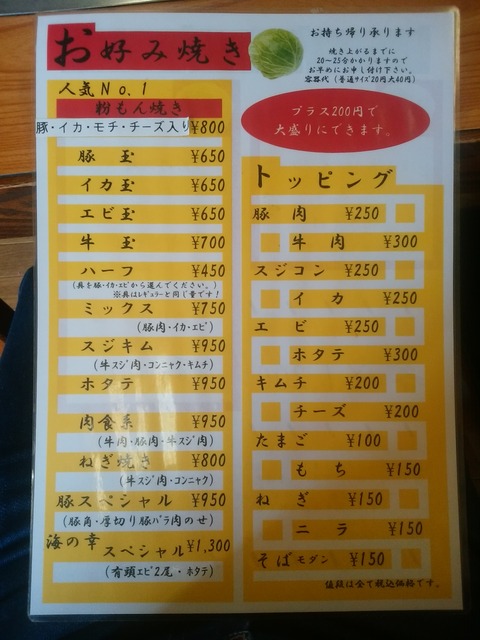 お好み焼き
お持ち帰り承ります
焼き上がるまでに
20〜25分かかりますので
お早めにお申し付け下さい。
容器代(普通サイズ20円大40円)
人気No.1
粉もん焼き
豚・イカ・モチ・チーズ入り¥800
豚玉 ¥650
イカ玉 ¥650
エビ玉 ¥650
牛玉 ¥700
ハーフ ¥450
(具を豚・イカ・エビから選んでください。)
※具はレギュラーと同じ量です!
ミックス ¥750
(豚肉・イカ・エビ)
スジキム ¥950
(牛スジ肉・コンニャク・キムチ)
ホタテ ¥950
肉食系 ¥950
(牛肉・豚肉・牛スジ肉)
ねぎ焼き ¥800
(牛スジ肉・コンニャク)
豚スペシャル ¥950
(豚角・厚切り豚バラ肉のせ)
海の幸スペシャル ¥1,300
(有頭エビ2尾・ホタテ)
プラス200円で
大盛りにできます。
トッピング
豚肉 ¥250
牛肉 ¥300
スジコン ¥250
イカ ¥250
エビ ¥250
ホタテ ¥300
キムチ ¥200
チーズ ¥200
たまご ¥100
もち ¥150
ねぎ ¥150
ニラ ¥150
そばモダン ¥150
値段は全て税込価格です。